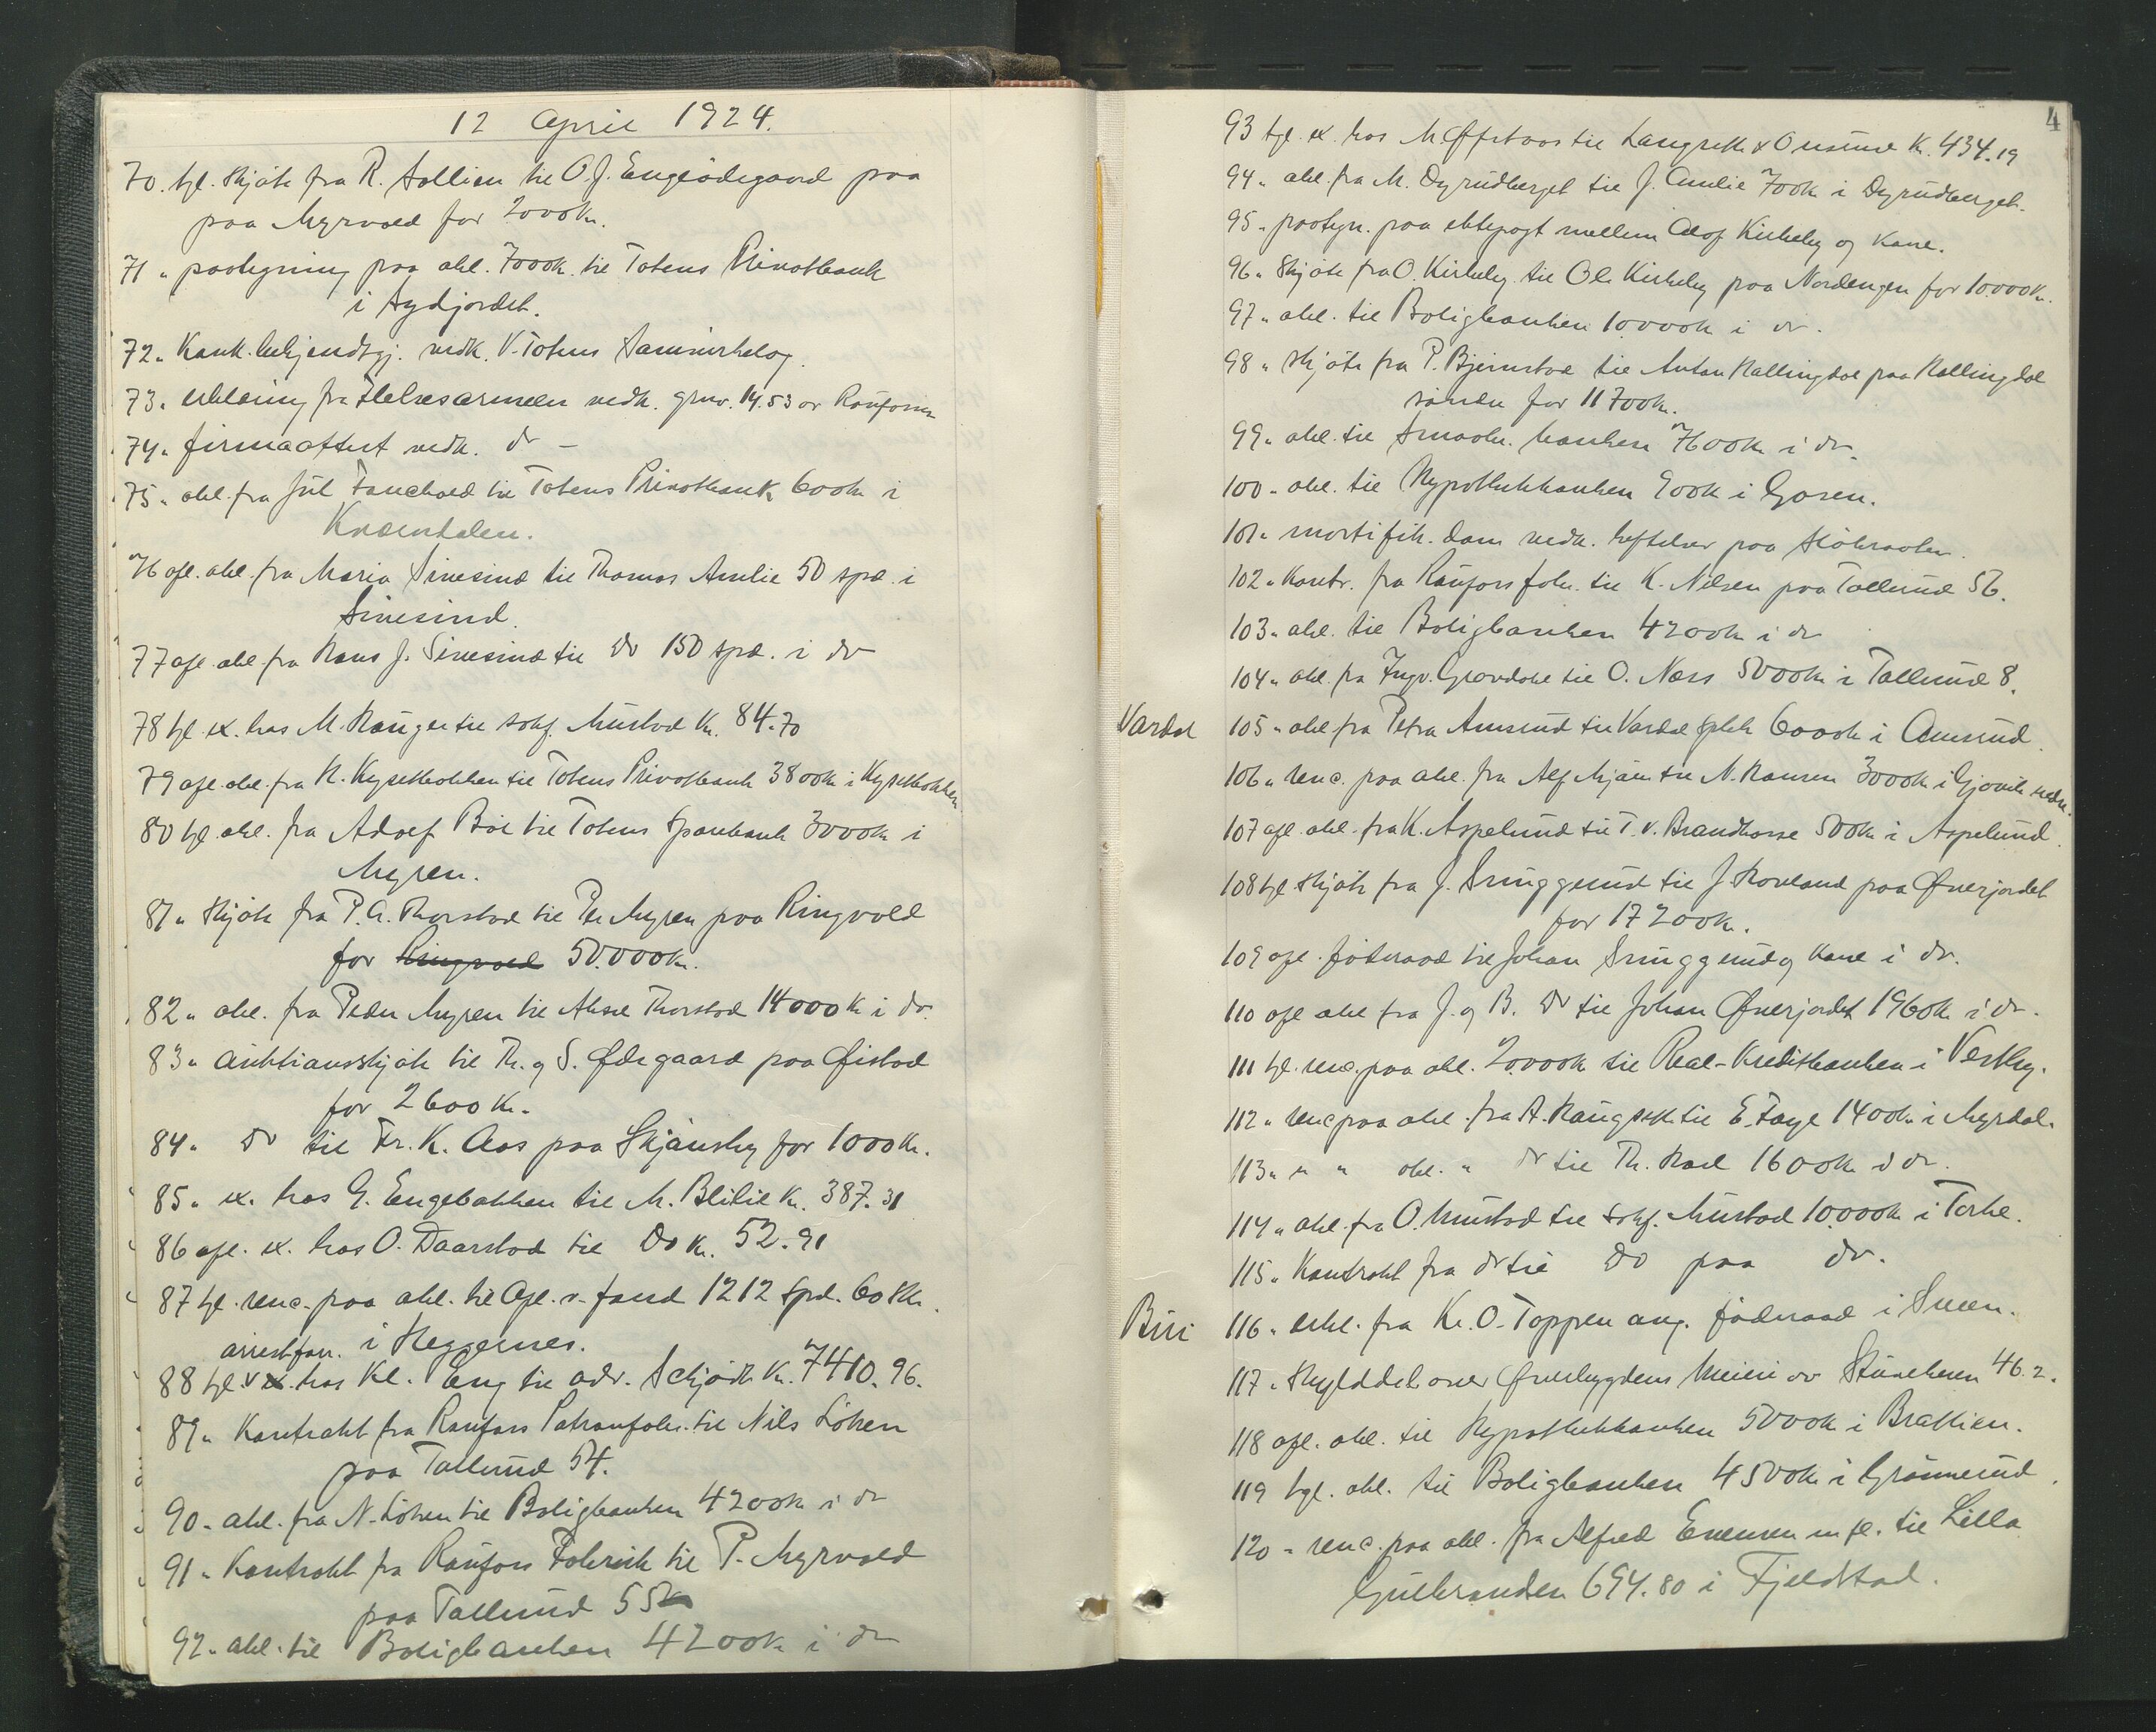 12 April 1924.
70. tgl. skjøte fra R. Sollien til O. J. Engeødegaard paa
paa Myrvold for 2000 kr.
71 " paategning paa obl. 7000 k. til Totens Privatbank
i Sydjordet.
72 " Konk. bekjendtgj. vedk. V. Totens Samvirkelag.
73 " erklæring fra Frelsesarmeen vedk. grnr. 14.53 av Raufoss
74 " firmaattest vedk. do –
75 " obl. fra Jul. til Totens Privatbank 600 kr i
76 afl. obl. fra Maria Sivesind til Thomas Amlie 50 spd. i
Sivesind.
77 afl. obl. fra Hans J. Sivesind til Do 150 spd. i do
78 tgl. ex. hos M. Hauger til sakf. Mustad kr. 84.70
79 afl. obl. fra H. til Totens Privatbank 3800 k i
80 tgl obl. fra Adolf Bøe til Totens Sparebank 3000 k i
Myren.
81 " Skjøte fra P. A. Thorstad til Per Myren paa Ringvold
for Ringvold 50.000 kr.
82 " obl. fra Peder Myren til Aksel Thorstad 14000 k i do.
83 " auktionsskjøte til Th. og S. Ødegaard paa Øistad
for 2600 kr.
84 " Do til Fr. K. Aas paa Skjønsby for 1000 kr.
85 " ex. hos G. Engebakken til M. Blilie kr. 387.31
86 afl. ex. hos O. Daarstad til Do kr. 52.91
87 tgl. renc. paa obl. til Opl. v. fond 1212 Spd. 60 sk.
i Heggernes.
arrestforr.
88 tgl. v ex. hos Kl. Eng til adv. Schjødt kr. 7410.96.
89 " Kontrakt fra Raufoss Patronfabr. til Nils Løken
paa Tollerud 54.
90 " obl. fra N. Løken til Boligbanken 4200 k i do
91 " Kontrakt fra Raufoss Fabrik til P. Myrvold
paa Tollerud 55
92 " obl. til Boligbanken 4200 k i do
4
93 tgl. ex. hos M. til & kr. 434.19
94 " obl. fra M. Dyrudberget til J. Amlie 700 k i Dyrudberget.
95 " paategn. paa ektepagt mellem Olof Kirkeby og kone.
96 " Skjøte fra O. Kirkeby til Ole Kirkeby paa Nordengen for 10.000 kr.
97 " obl. til Boligbanken 10.000 k i do.
98 " skjøte fra P. Bjernstad til Anton Hallingdal paa Hallingdal
søndre for 11700 kr.
99 " obl. til Smaabr. banken 7600 k i do.
100 " obl. til Hypothekbanken 900 k i Gosen.
101 " mortifik. dom vedk. heftelser paa
102 " Kontr. fra Raufoss fabr. til K. Nilsen paa Tollerud 56.
103 " obl. til Boligbanken 4200 k i do
104 " obl. fra Ingv. til O. Næss 5000 k i Tollerud 8.
Vardal 105 " obl. fra Petra Amsrud til Vardal spbk 6000 k i Amsrud.
106 " renc. paa obl. fra Alf til N. Hansen 3000 k i Gjøvik nedre.
107 afl. obl. fra K. Aspelund til T. v. Brandkasse 500 k i Aspelund.
108 tgl skjøte fra J. Snuggerud til J. Hovland paa Øverjordet
for 17200 kr.
109 afl. føderaad til Johan Snuggerud og kone i do.
110 afl obl fra J. og B. Do til Johan Øverjordet 1960 k i do.
111 tgl. renc. paa obl. 20.000 k til Real-Kreditbanken i Vestby.
112 " renc paa obl. fra A. til E. Faye 1400 k. i Myrdal.
113 " " " obl. " do til Th. Hoel 1600 k i do.
114 " obl. fra O. Mustad til sakf. Mustad 10.000 k i Torke.
115 " Kontrakt fra do til Do paa do.
Biri 116 " erkl. fra Kr. O. Toppen ang. føderaad i Sveen.
117 " Skylddel. over Øverbygdens Meieri av 46.2.
118 afl. obl. til Hypothekbanken 5000 k i Bratlien.
119 tgl. obl. til Boligbanken 4500 k i Grønnerud.
120 " renc. paa obl. fra Alfred Evensen m fl. til Lilla
Gulbrandsen 694.80 i Fjeldstad.